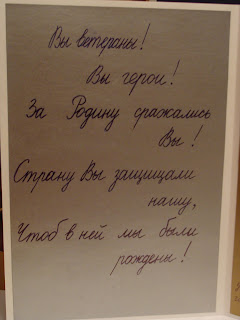 Вы ветераны!
Вы герои!
За Родину сражались
Вы!
Страну Вы защищали
нашу,
Чтоб в ней мы были
рождены!